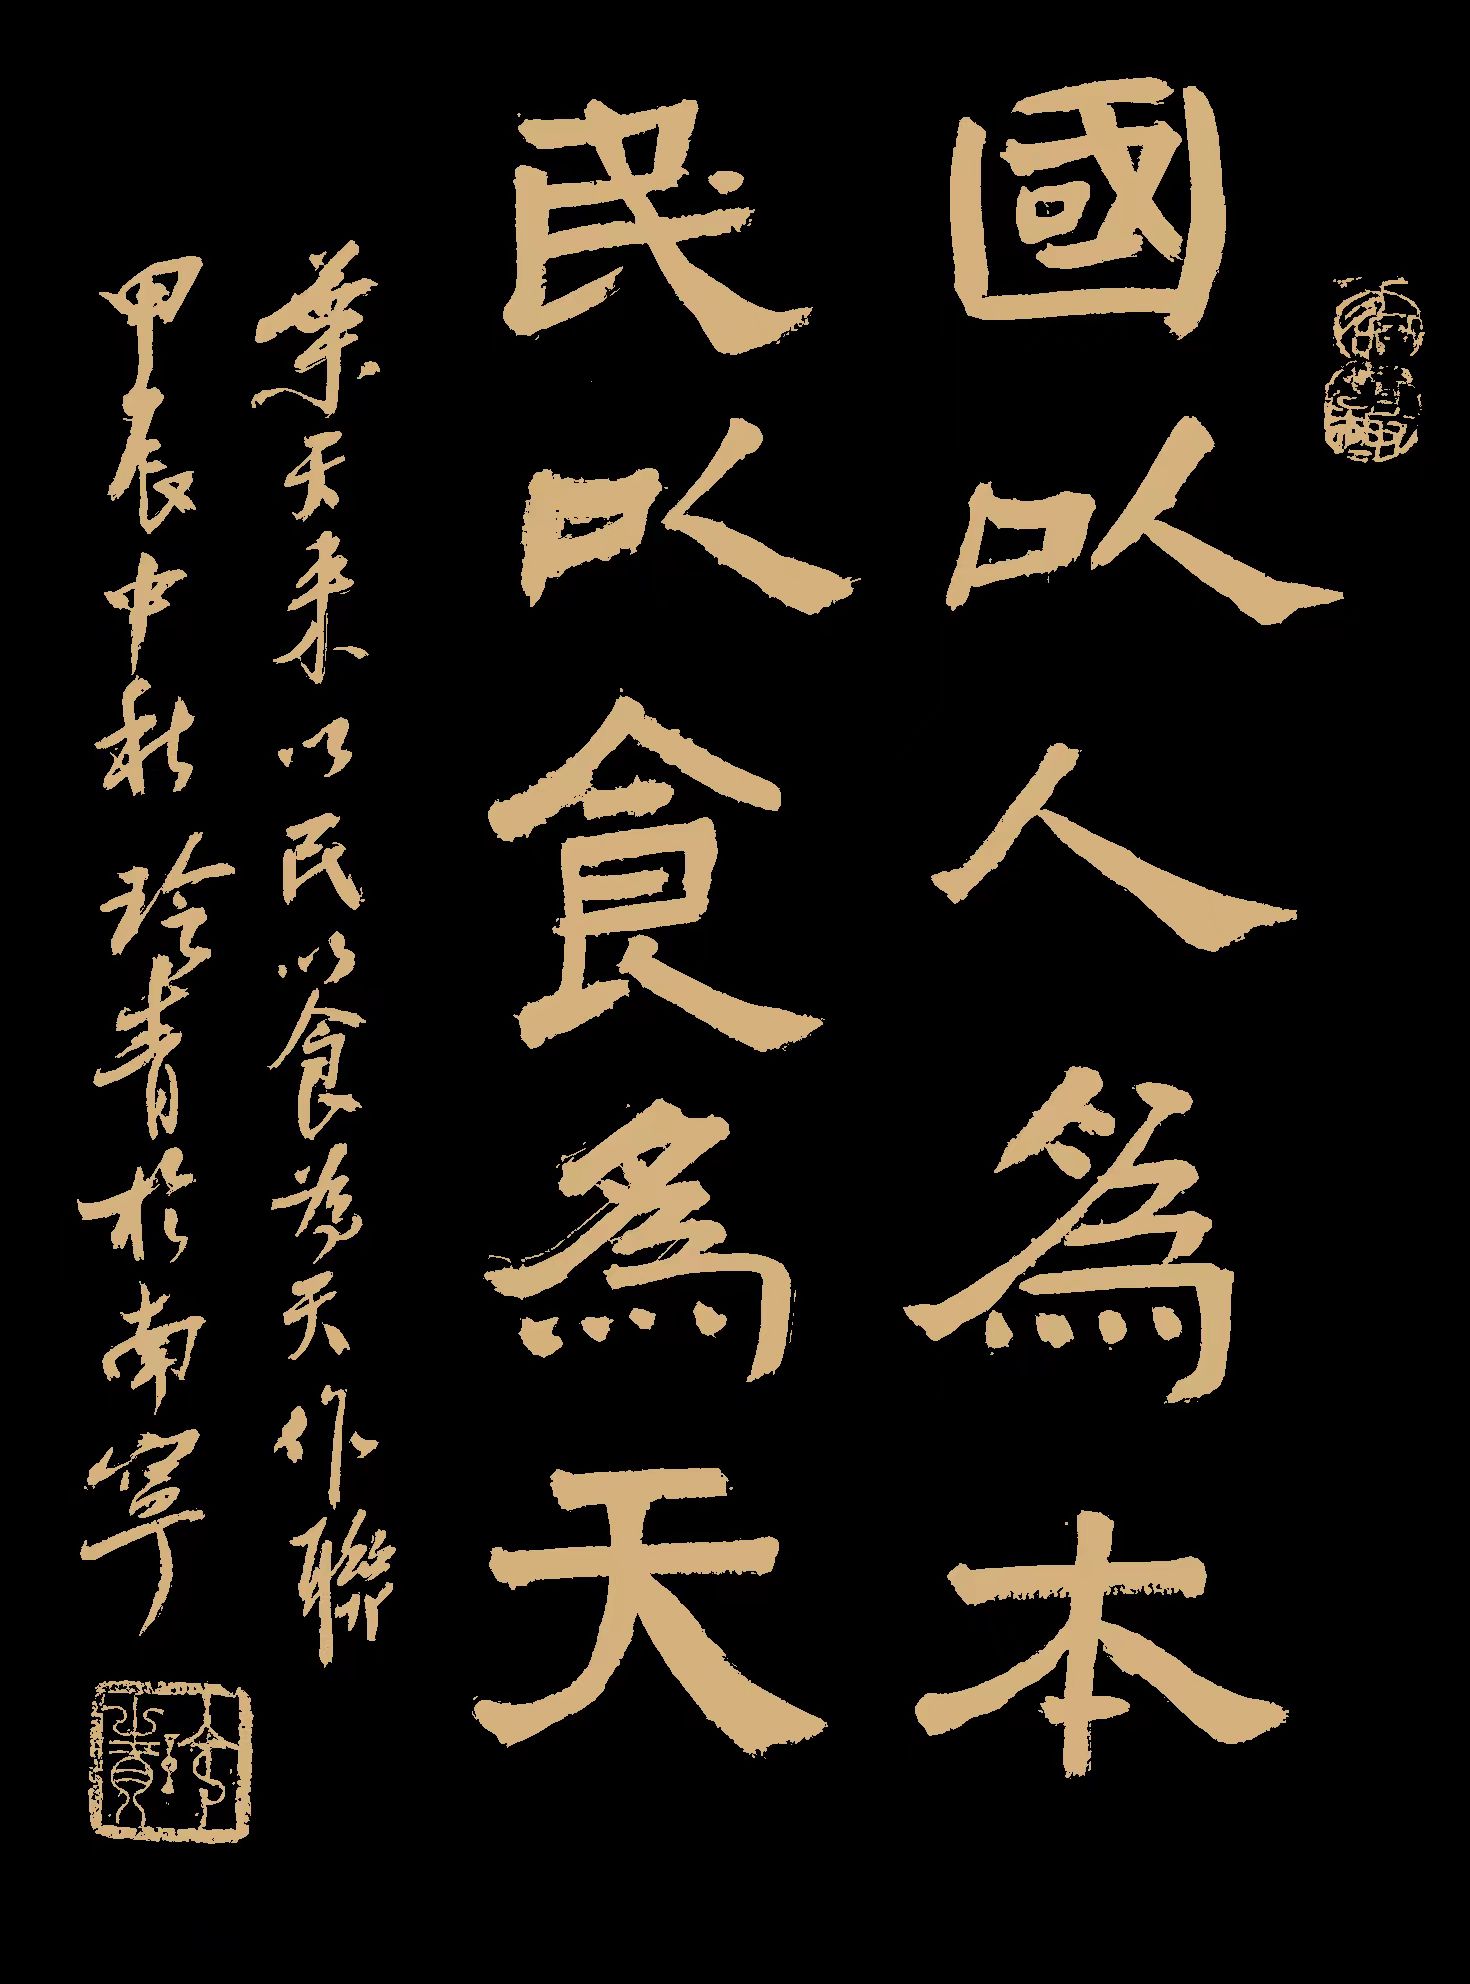 國以人為本
民以食為天
葉天来以民以食為天作聯
甲辰中秋玲青於南寧